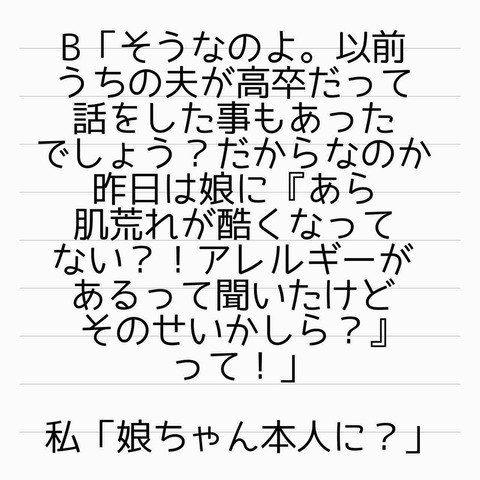 B「そうなのよ。以前
うちの夫が高卒だって
話をした事もあった
でしょう？だからなのか
昨日は娘に『あら
肌荒れが酷くなって
ない？！アレルギーが
あるって聞いたけど
そのせいかしら？』
って！」
私「娘ちゃん本人に？」